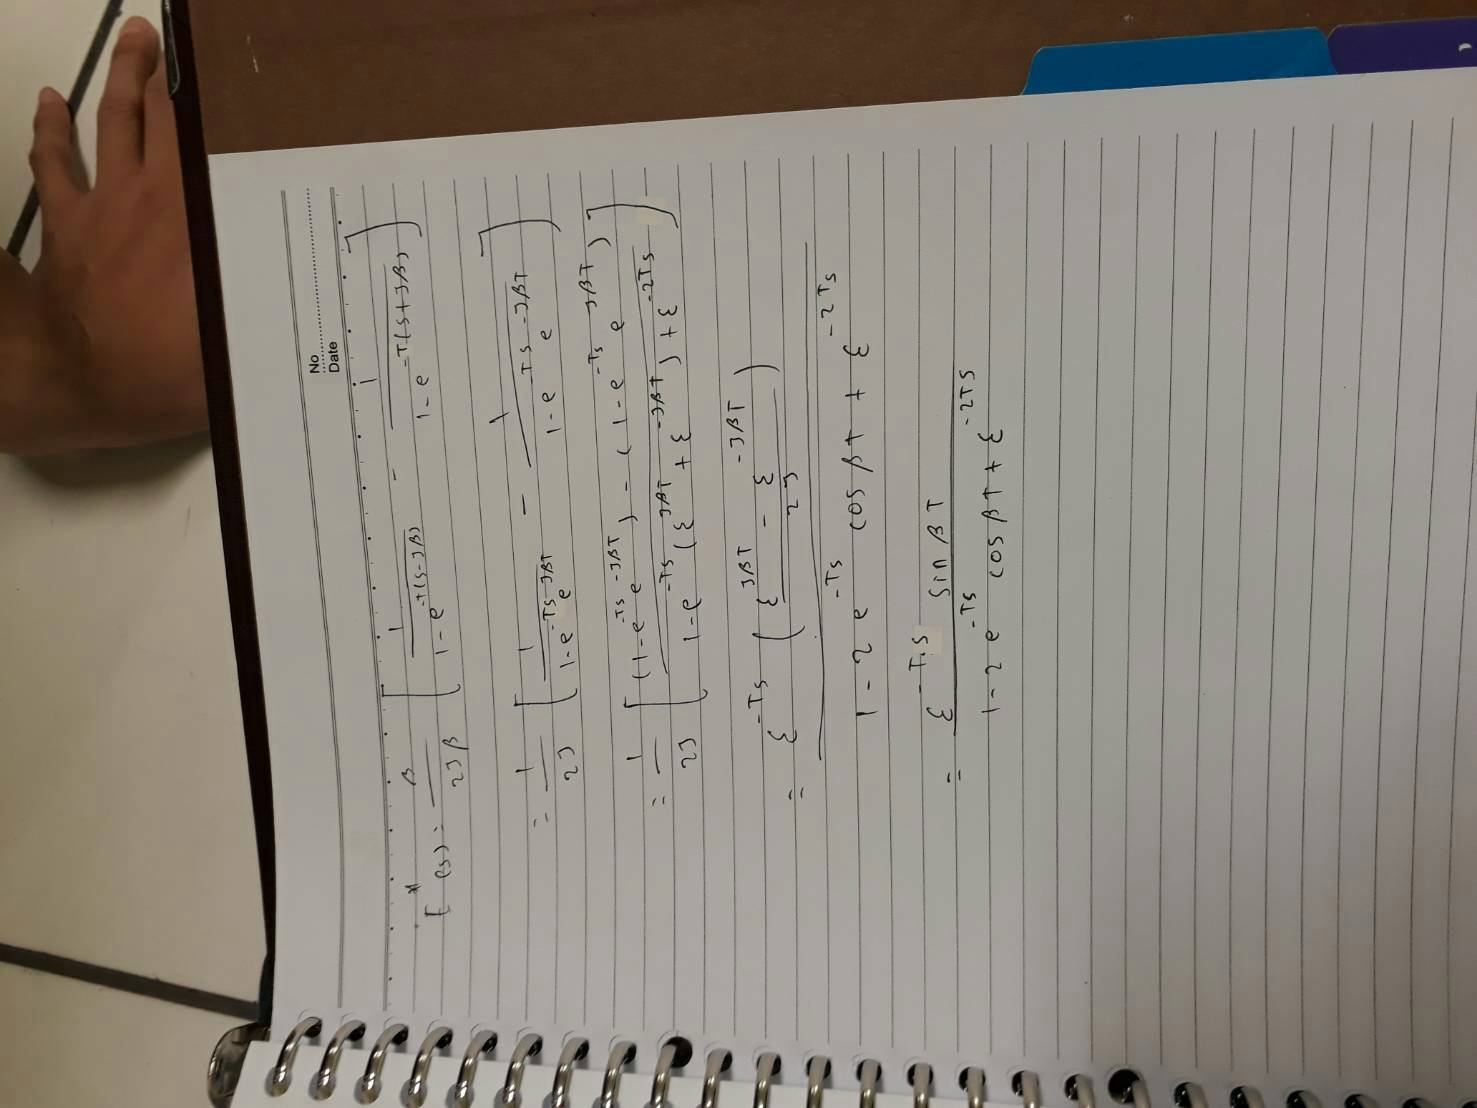 No
Date
E*(s) = β/2Jβ [ 1/(1-e^-T(s-Jβ)) - 1/(1-e^-T(s+Jβ)) ]
= 1/2J [ 1/(1-e^-Ts e^JβT) - 1/(1-e^-Ts e^-JβT) ]
= 1/2J [ ((1-e^-Ts e^-JβT) - (1-e^-Ts e^JβT))/(1-e^-Ts (ε^JβT + ε^-JβT) + ε^-2Ts) ]
= ε^-Ts ((ε^JβT - ε^-JβT)/2J)/(1-2e^-Ts cos βT + ε^-2Ts)
= ε^-T.S sin βT/(1-2e^-TS cos βT + ε^-2TS)